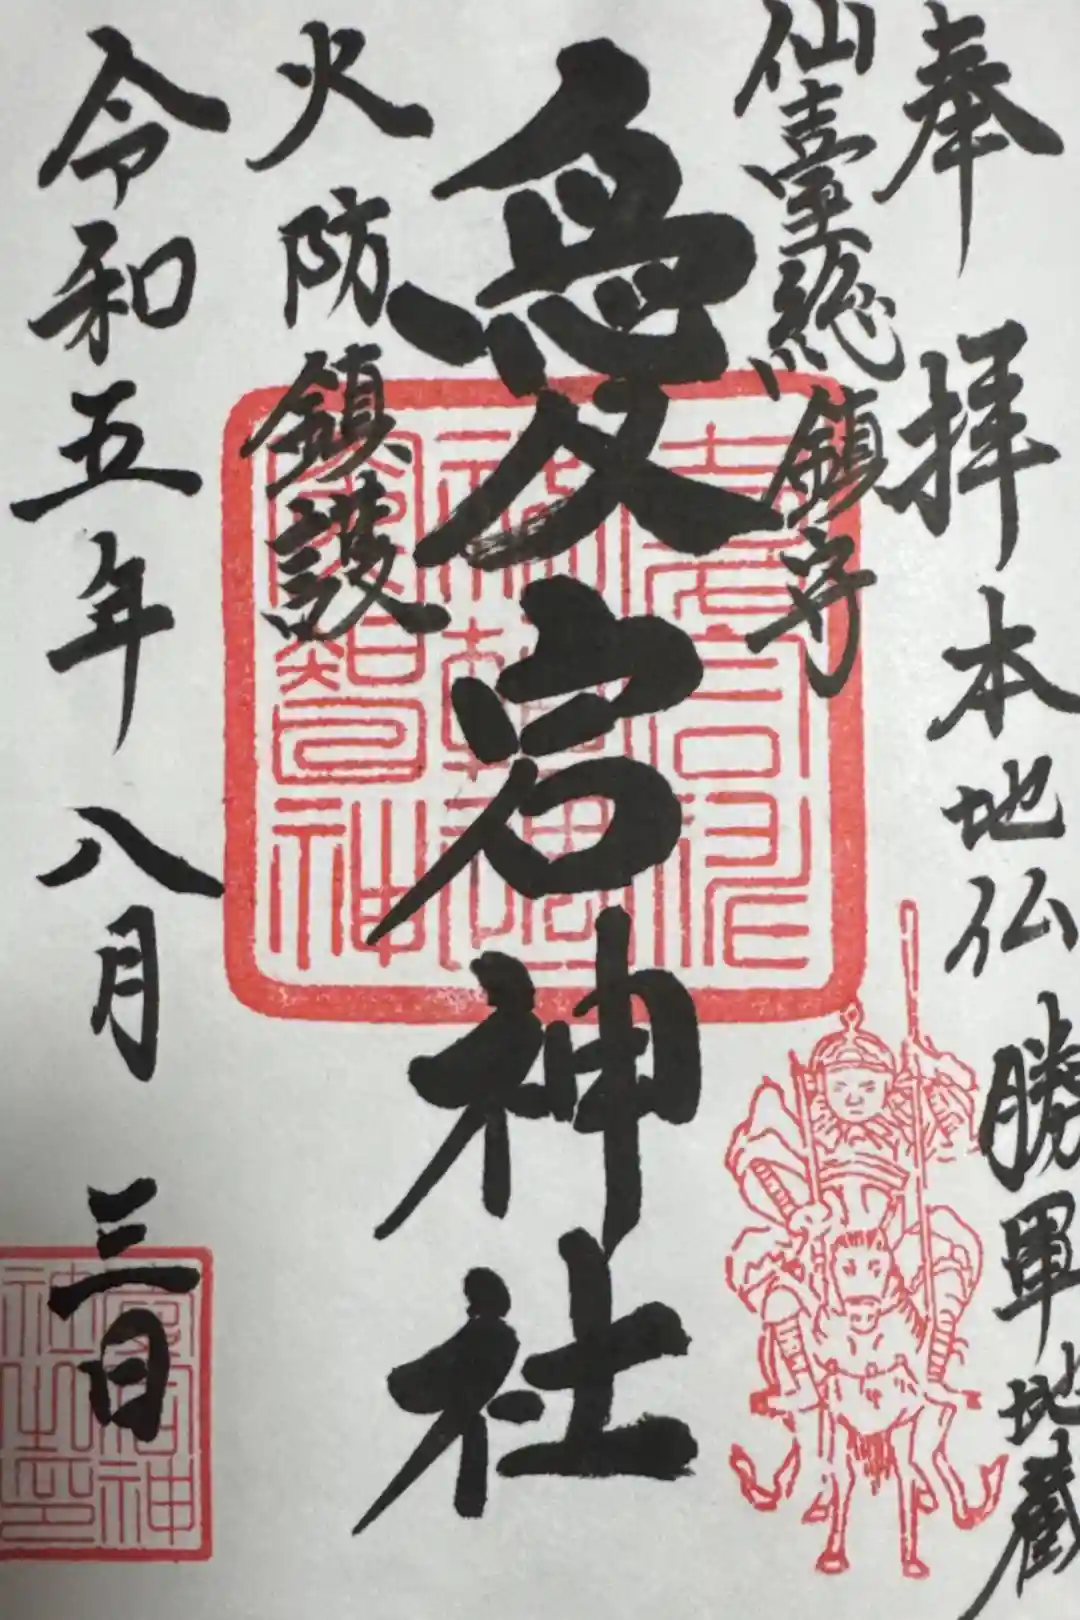 奉拝
本地仏 勝軍地蔵
仙臺総鎮守
愛宕神社
火防鎮護
令和五年八月三日